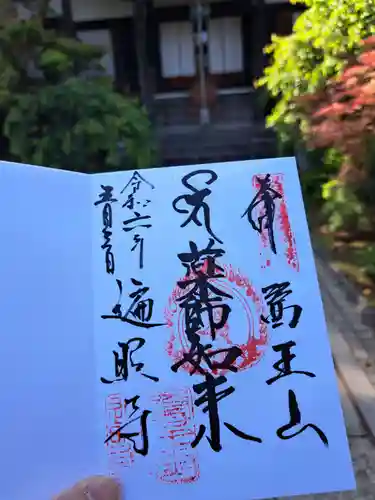 奉拝
医王山
薬師如来
令和六年
五月三日
遍照寺